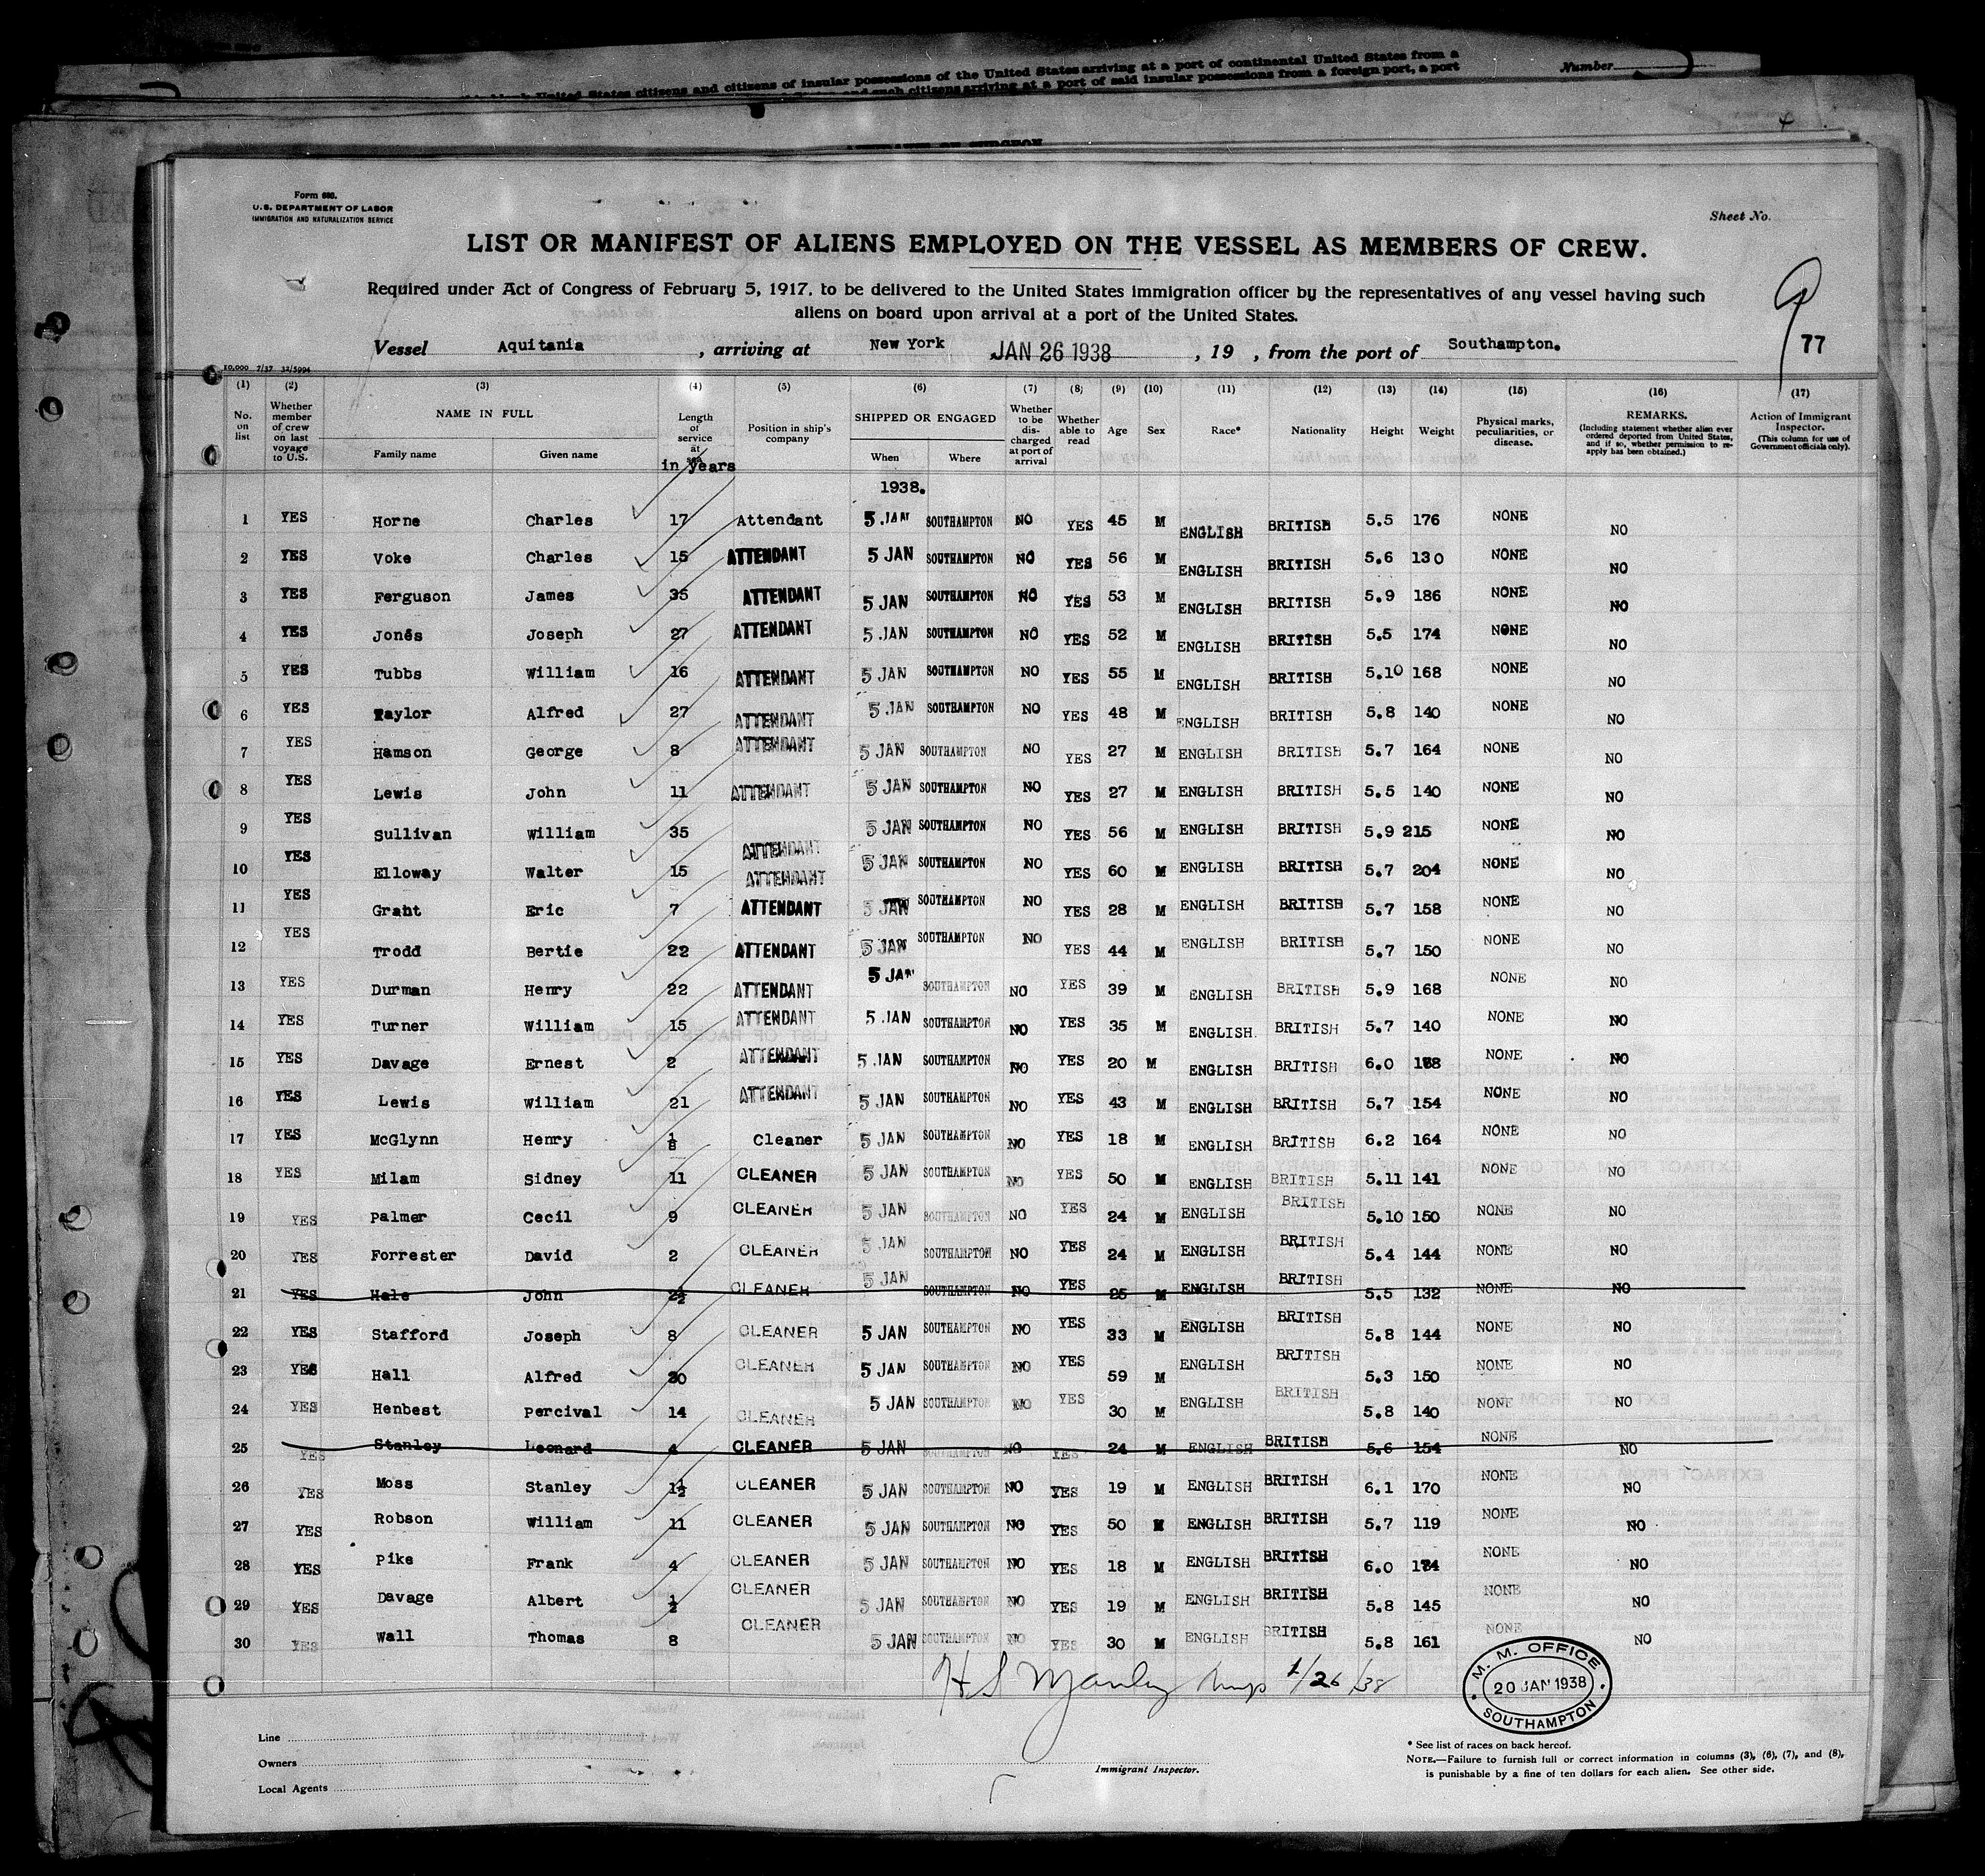 citizens of insular possessions of the United States arriving at a port of continental United States from a
such citizens arriving at a port of said insular possessions from a foreign port, a port
Number
Form 680.
U.S. DEPARTMENT OF LABOR
IMMIGRATION AND NATURALIZATION SERVICE
Sheet No.
LIST OR MANIFEST OF ALIENS EMPLOYED ON THE VESSEL AS MEMBERS OF CREW.
Required under Act of Congress of February 5, 1917, to be delivered to the United States immigration officer by the representatives of any vessel having such
aliens on board upon arrival at a port of the United States.
9
77
Vessel Aquitania , arriving at New York JAN 26 1938 , 19 , from the port of Southampton.
10,000 7/37 32/5994
(1) (2) (3) (4) (5) (6) (7) (8) (9) (10) (11) (12) (13) (14) (15) (16) (17)
No. on list
Whether member of crew on last voyage to U.S.
NAME IN FULL
Family name Given name
Length of service at sea
in years
Position in ship's company
SHIPPED OR ENGAGED
When Where
Whether to be discharged at port of arrival
Whether able to read
Age Sex Race* Nationality Height Weight
Physical marks, peculiarities, or disease.
REMARKS.
(Including statement whether alien ever ordered deported from United States, and if so, whether permission to reapply has been obtained.)
Action of Immigrant Inspector.
(This column for use of Government officials only).
1938.
1 YES Horne Charles 17 Attendant 5 JAN SOUTHAMPTON NO YES 45 M ENGLISH BRITISH 5.5 176 NONE NO
2 YES Voke Charles 15 ATTENDANT 5 JAN SOUTHAMPTON NO YES 56 M ENGLISH BRITISH 5.6 130 NONE NO
3 YES Ferguson James 35 ATTENDANT 5 JAN SOUTHAMPTON NO YES 53 M ENGLISH BRITISH 5.9 186 NONE NO
4 YES Jones Joseph 27 ATTENDANT 5 JAN SOUTHAMPTON NO YES 52 M ENGLISH BRITISH 5.5 174 NONE NO
5 YES Tubbs William 16 ATTENDANT 5 JAN SOUTHAMPTON NO YES 55 M ENGLISH BRITISH 5.10 168 NONE NO
6 YES Taylor Alfred 27 ATTENDANT 5 JAN SOUTHAMPTON NO YES 48 M ENGLISH BRITISH 5.8 140 NONE NO
7 YES Hamson George 8 ATTENDANT 5 JAN SOUTHAMPTON NO YES 27 M ENGLISH BRITISH 5.7 164 NONE NO
8 YES Lewis John 11 ATTENDANT 5 JAN SOUTHAMPTON NO YES 27 M ENGLISH BRITISH 5.5 140 NONE NO
9 YES Sullivan William 35 ATTENDANT 5 JAN SOUTHAMPTON NO YES 56 M ENGLISH BRITISH 5.9 215 NONE NO
10 YES Elloway Walter 15 ATTENDANT 5 JAN SOUTHAMPTON NO YES 60 M ENGLISH BRITISH 5.7 204 NONE NO
11 YES Grant Eric 7 ATTENDANT 5 JAN SOUTHAMPTON NO YES 28 M ENGLISH BRITISH 5.7 158 NONE NO
12 YES Trodd Bertie 22 ATTENDANT 5 JAN SOUTHAMPTON NO YES 44 M ENGLISH BRITISH 5.7 150 NONE NO
13 YES Durman Henry 22 ATTENDANT 5 JAN SOUTHAMPTON NO YES 39 M ENGLISH BRITISH 5.9 168 NONE NO
14 YES Turner William 15 ATTENDANT 5 JAN SOUTHAMPTON NO YES 35 M ENGLISH BRITISH 5.7 140 NONE NO
15 YES Davage Ernest 2 ATTENDANT 5 JAN SOUTHAMPTON NO YES 20 M ENGLISH BRITISH 6.0 NONE NO
16 YES Lewis William 21 ATTENDANT 5 JAN SOUTHAMPTON NO YES 43 M ENGLISH BRITISH 5.7 154 NONE NO
17 YES McGlynn Henry 1/8 Cleaner 5 JAN SOUTHAMPTON NO YES 18 M ENGLISH BRITISH 6.2 164 NONE NO
18 YES Milam Sidney 11 CLEANER 5 JAN SOUTHAMPTON NO YES 50 M ENGLISH BRITISH 5.11 141 NONE NO
19 YES Palmer Cecil 9 CLEANER 5 JAN SOUTHAMPTON NO YES 24 M ENGLISH BRITISH 5.10 150 NONE NO
20 YES Forrester David 2 CLEANER 5 JAN SOUTHAMPTON NO YES 24 M ENGLISH BRITISH 5.4 144 NONE NO
21 YES Hale John 2½ CLEANER 5 JAN SOUTHAMPTON NO YES 25 M ENGLISH BRITISH 5.5 132 NONE NO
22 YES Stafford Joseph 8 CLEANER 5 JAN SOUTHAMPTON NO YES 33 M ENGLISH BRITISH 5.8 144 NONE NO
23 YES Hall Alfred 30 CLEANER 5 JAN SOUTHAMPTON NO YES 59 M ENGLISH BRITISH 5.3 150 NONE NO
24 YES Henbest Percival 14 CLEANER 5 JAN SOUTHAMPTON NO YES 30 M ENGLISH BRITISH 5.8 140 NONE NO
25 YES Stanley Leonard 4 CLEANER 5 JAN SOUTHAMPTON NO YES 24 M ENGLISH BRITISH 5.6 154 NONE NO
26 YES Moss Stanley 1½ CLEANER 5 JAN SOUTHAMPTON NO YES 19 M ENGLISH BRITISH 6.1 170 NONE NO
27 YES Robson William 11 CLEANER 5 JAN SOUTHAMPTON NO YES 50 M ENGLISH BRITISH 5.7 119 NONE NO
28 YES Pike Frank 4 CLEANER 5 JAN SOUTHAMPTON NO YES 18 M ENGLISH BRITISH 6.0 NONE NO
29 YES Davage Albert ½ CLEANER 5 JAN SOUTHAMPTON NO YES 19 M ENGLISH BRITISH 5.8 145 NONE NO
30 YES Wall Thomas 8 CLEANER 5 JAN SOUTHAMPTON NO YES 30 M ENGLISH BRITISH 5.8 161 NONE NO
H S Manley 1/26/38
M. M. OFFICE
20 JAN 1938
SOUTHAMPTON
Line
Owners
Local Agents
Immigrant Inspector.
* See list of races on back hereof.
NOTE.—Failure to furnish full or correct information in columns (3), (6), (7), and (8),
is punishable by a fine of ten dollars for each alien. See other side.